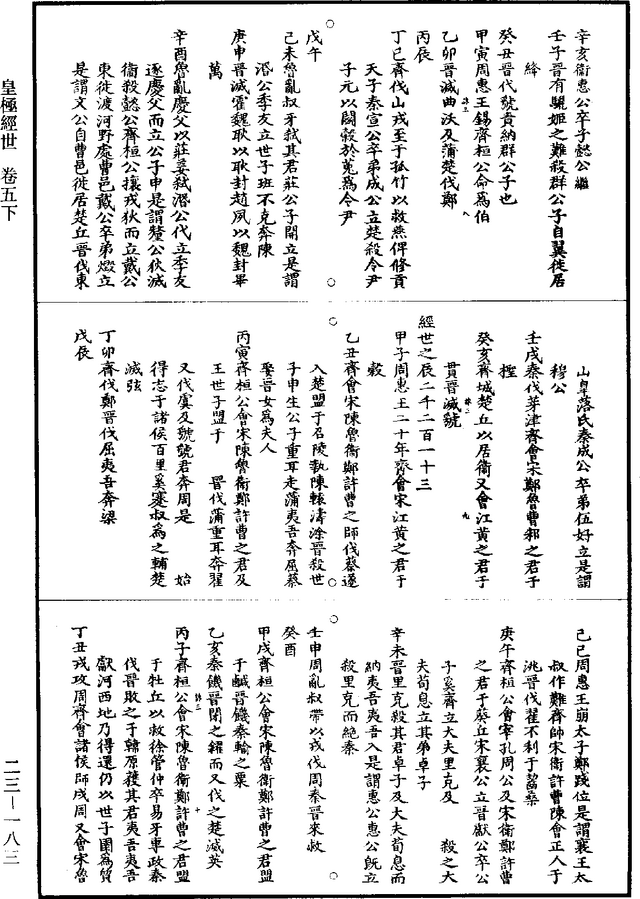 皇極經世 卷五下
二三—一八三
辛亥衞惠公卒子懿公繼
壬子晉有驪姬之難殺群公子自翼徙居
絳
癸丑晉代虢責納群公子也
甲寅周惠王錫齊桓公命爲伯
乙卯晉滅曲沃及蒲楚伐鄭
丙辰
丁巳齊伐山戎至于孤竹以救燕俾修貢
天子秦宣公卒弟成公立楚殺令尹
子元以鬭穀於菟爲令尹
戊午
己未魯亂叔牙弒其君莊公子開立是謂
湣公季友立世子班不克奔陳
庚申晉滅霍魏耿以耿封趙夙以魏封畢
萬
辛酉魯亂慶父以莊姜弒湣公代立季友
逐慶父而立公子申是謂釐公狄滅
衞殺懿公齊桓公攘戎狄而立戴公
東徙渡河野處曹邑戴公卒弟燬立
是謂文公自曹邑徙居楚丘晉伐東
山皐落氏秦成公卒弟任好立是謂
穆公
壬戌秦伐茅津齊會宋鄭魯曹邾之君于
檉
癸亥齊城楚丘以居衞又會江黃之君于
貫晉滅虢
經世之辰二千二百一十三
甲子周惠王二十年齊會宋江黃之君于
穀
乙丑齊會宋陳魯衞鄭許曹之師伐蔡遂
入楚盟于召陵執陳轅濤涂晉殺世
子申生公子重耳走蒲夷吾奔屈蔡
娶晉女爲夫人
丙寅齊桓公會宋陳魯衞鄭許曹之君及
王世子盟于 晉伐蒲重耳奔翟
又伐虞及虢虢君奔周是 始
得志于諸侯百里奚蹇叔爲之輔楚
滅弦
丁卯齊伐鄭晉伐屈夷吾奔梁
戊辰
己巳周惠王崩太子鄭踐位是謂襄王太
叔作難齊師宋衞許曹陳會正人于
洮晉伐翟不利于齧桑
庚午齊桓公會宰孔周公及宋衞鄭許曹
之君于葵丘宋襄公立晉獻公卒公
子奚齊立大夫里克及 殺之大
夫荀息立其弟卓子
辛未晉里克殺其君卓子及大夫荀息而
納夷吾夷吾入是謂惠公惠公旣立
殺里克而絕秦
壬申周亂叔帶以戎伐周秦晉來救
癸酉
甲戌齊桓公會宋陳魯衞鄭許曹之君盟
于鹹晉饑秦輸之粟
乙亥秦饑晉閉之糴而又伐之楚滅英
丙子齊桓公會宋陳魯衞鄭許曹之君盟
于牡丘以救徐管仲卒易牙專政秦
伐晉敗之于韓原獲其君夷吾夷吾
獻河西地乃得還仍以世子圉爲質
丁丑戎攻周齊會諸侯師戍周又會宋魯